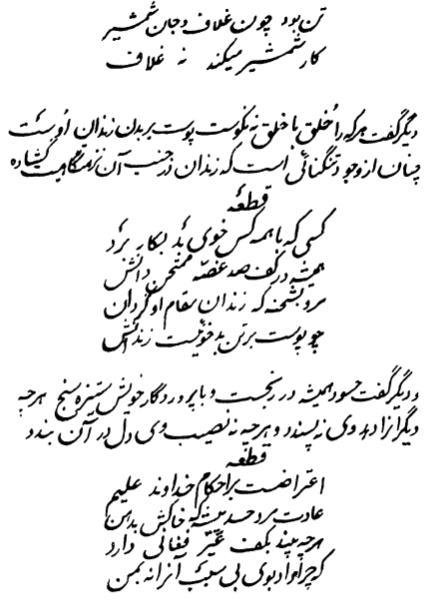 تن بود چون غلاف و جان شمشیر
کار شمشیر میکند نه غلاف
دیگر گفت هر که را خُلق با خلق نه نکوست پوست بر بدن زندان اوست
چنان از وجود تنگنائی است که زندان در جنب آن نزهتگاهیست گشاده
قطعهٔ
کسی که با همه کس خوی بد بکار برد
همیشه در کف صد غصّه ممتحن دانش
مرو بشحنه که زندان مقام او گردان
چو پوست بر تن بدخو زندانش
و دیگر گفت حسود همیشه در رنجست و با پروردگار خویش ستیزه سنج هرچه
دیگرانرا دهد وی نه پسندد و هرچه نه نصیب وی دل در آن بندد
قطعه
اعتراضست بر احکام خداوند علیم
عادت مرد حسد پیشه که خاکش بدهن
هرچه بیند بکف غیر فغانی دارد
که چرا داد بوی بی سببی آنرا نه بمن